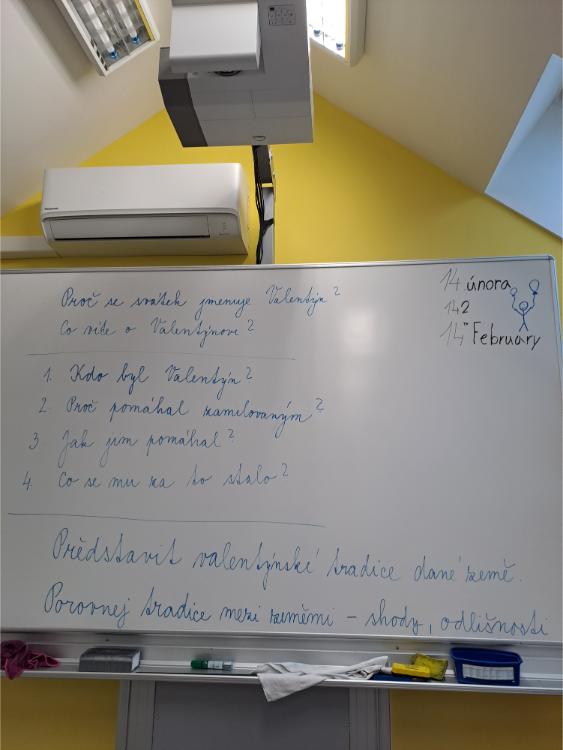 Proč se svátek jmenuje Valentýn?
Co víte o Valentýnovi?
1. Kdo byl Valentýn?
2. Proč pomáhal zamilovaným?
3 Jak jim pomáhal?
4. Co se mu za to stalo?
Představit valentýnské tradice dané země.
Porovnej tradice mezi zeměmi – shody, odlišnosti
14 února
14 2
14th February